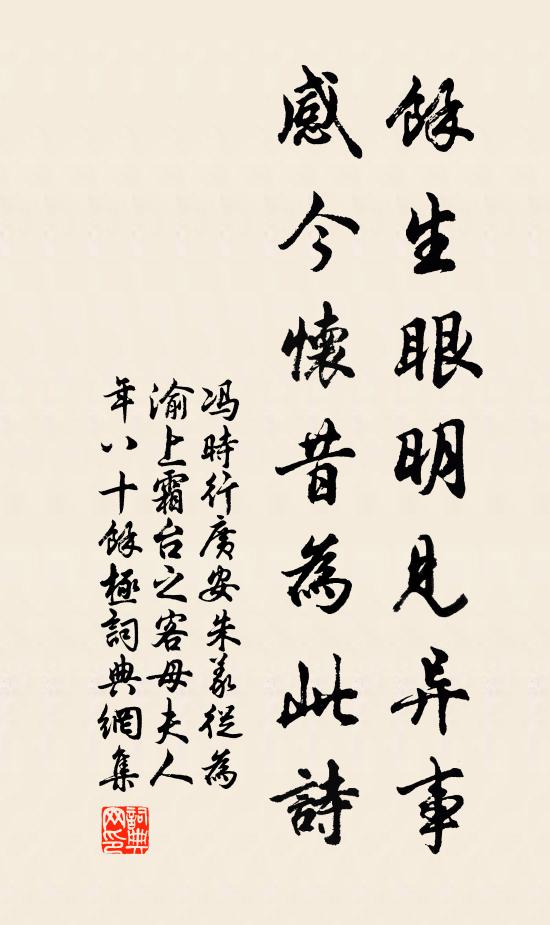 餘生眼明見异事
感今懷昔為此詩
冯時行廣安朱義從為
渝上霜台之客母夫人
年八十餘極詞典網集
詞典
网印